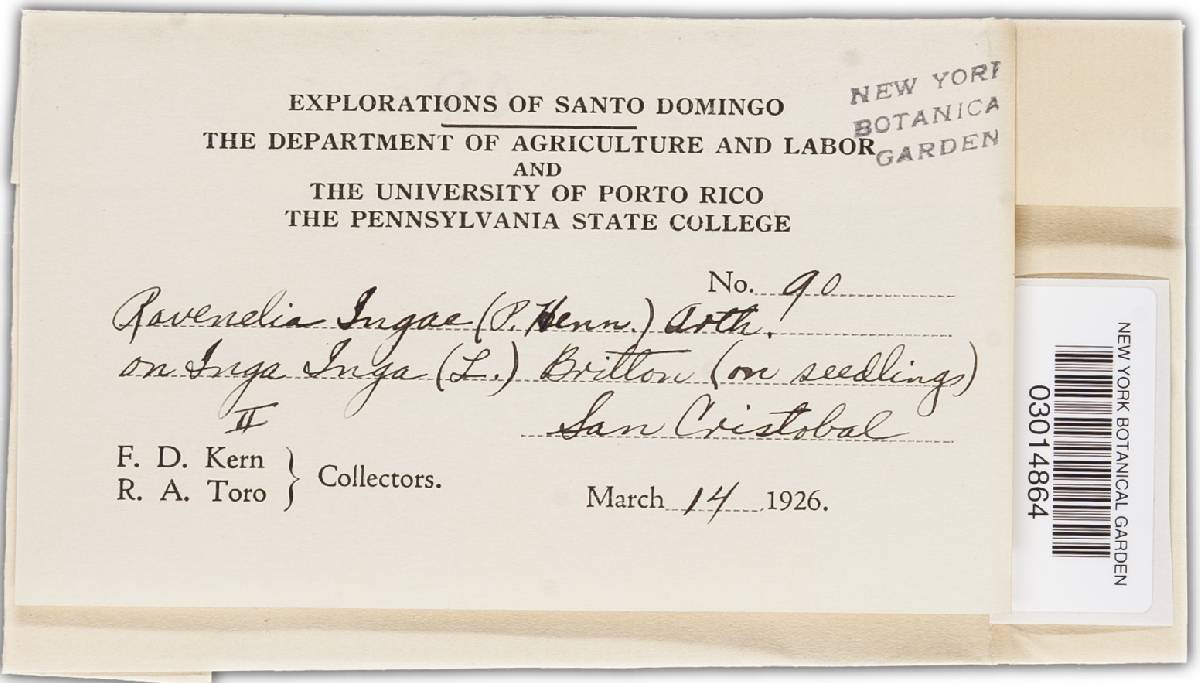 EXPLORATIONS OF SANTO DOMINGO
THE DEPARTMENT OF AGRICULTURE AND LABOR
AND
THE UNIVERSITY OF PORTO RICO
THE PENNSYLVANIA STATE COLLEGE
NEW YORK
BOTANICA
GARDEN
No. 90
Ravenelia Ingae (P. Henn.) Arth.
on Inga Inga (L.) Britton (on seedlings)
II
San Cristobal
F. D. Kern
R. A. Toro
} Collectors.
March 14, 1926.
NEW YORK BOTANICAL GARDEN
03014864